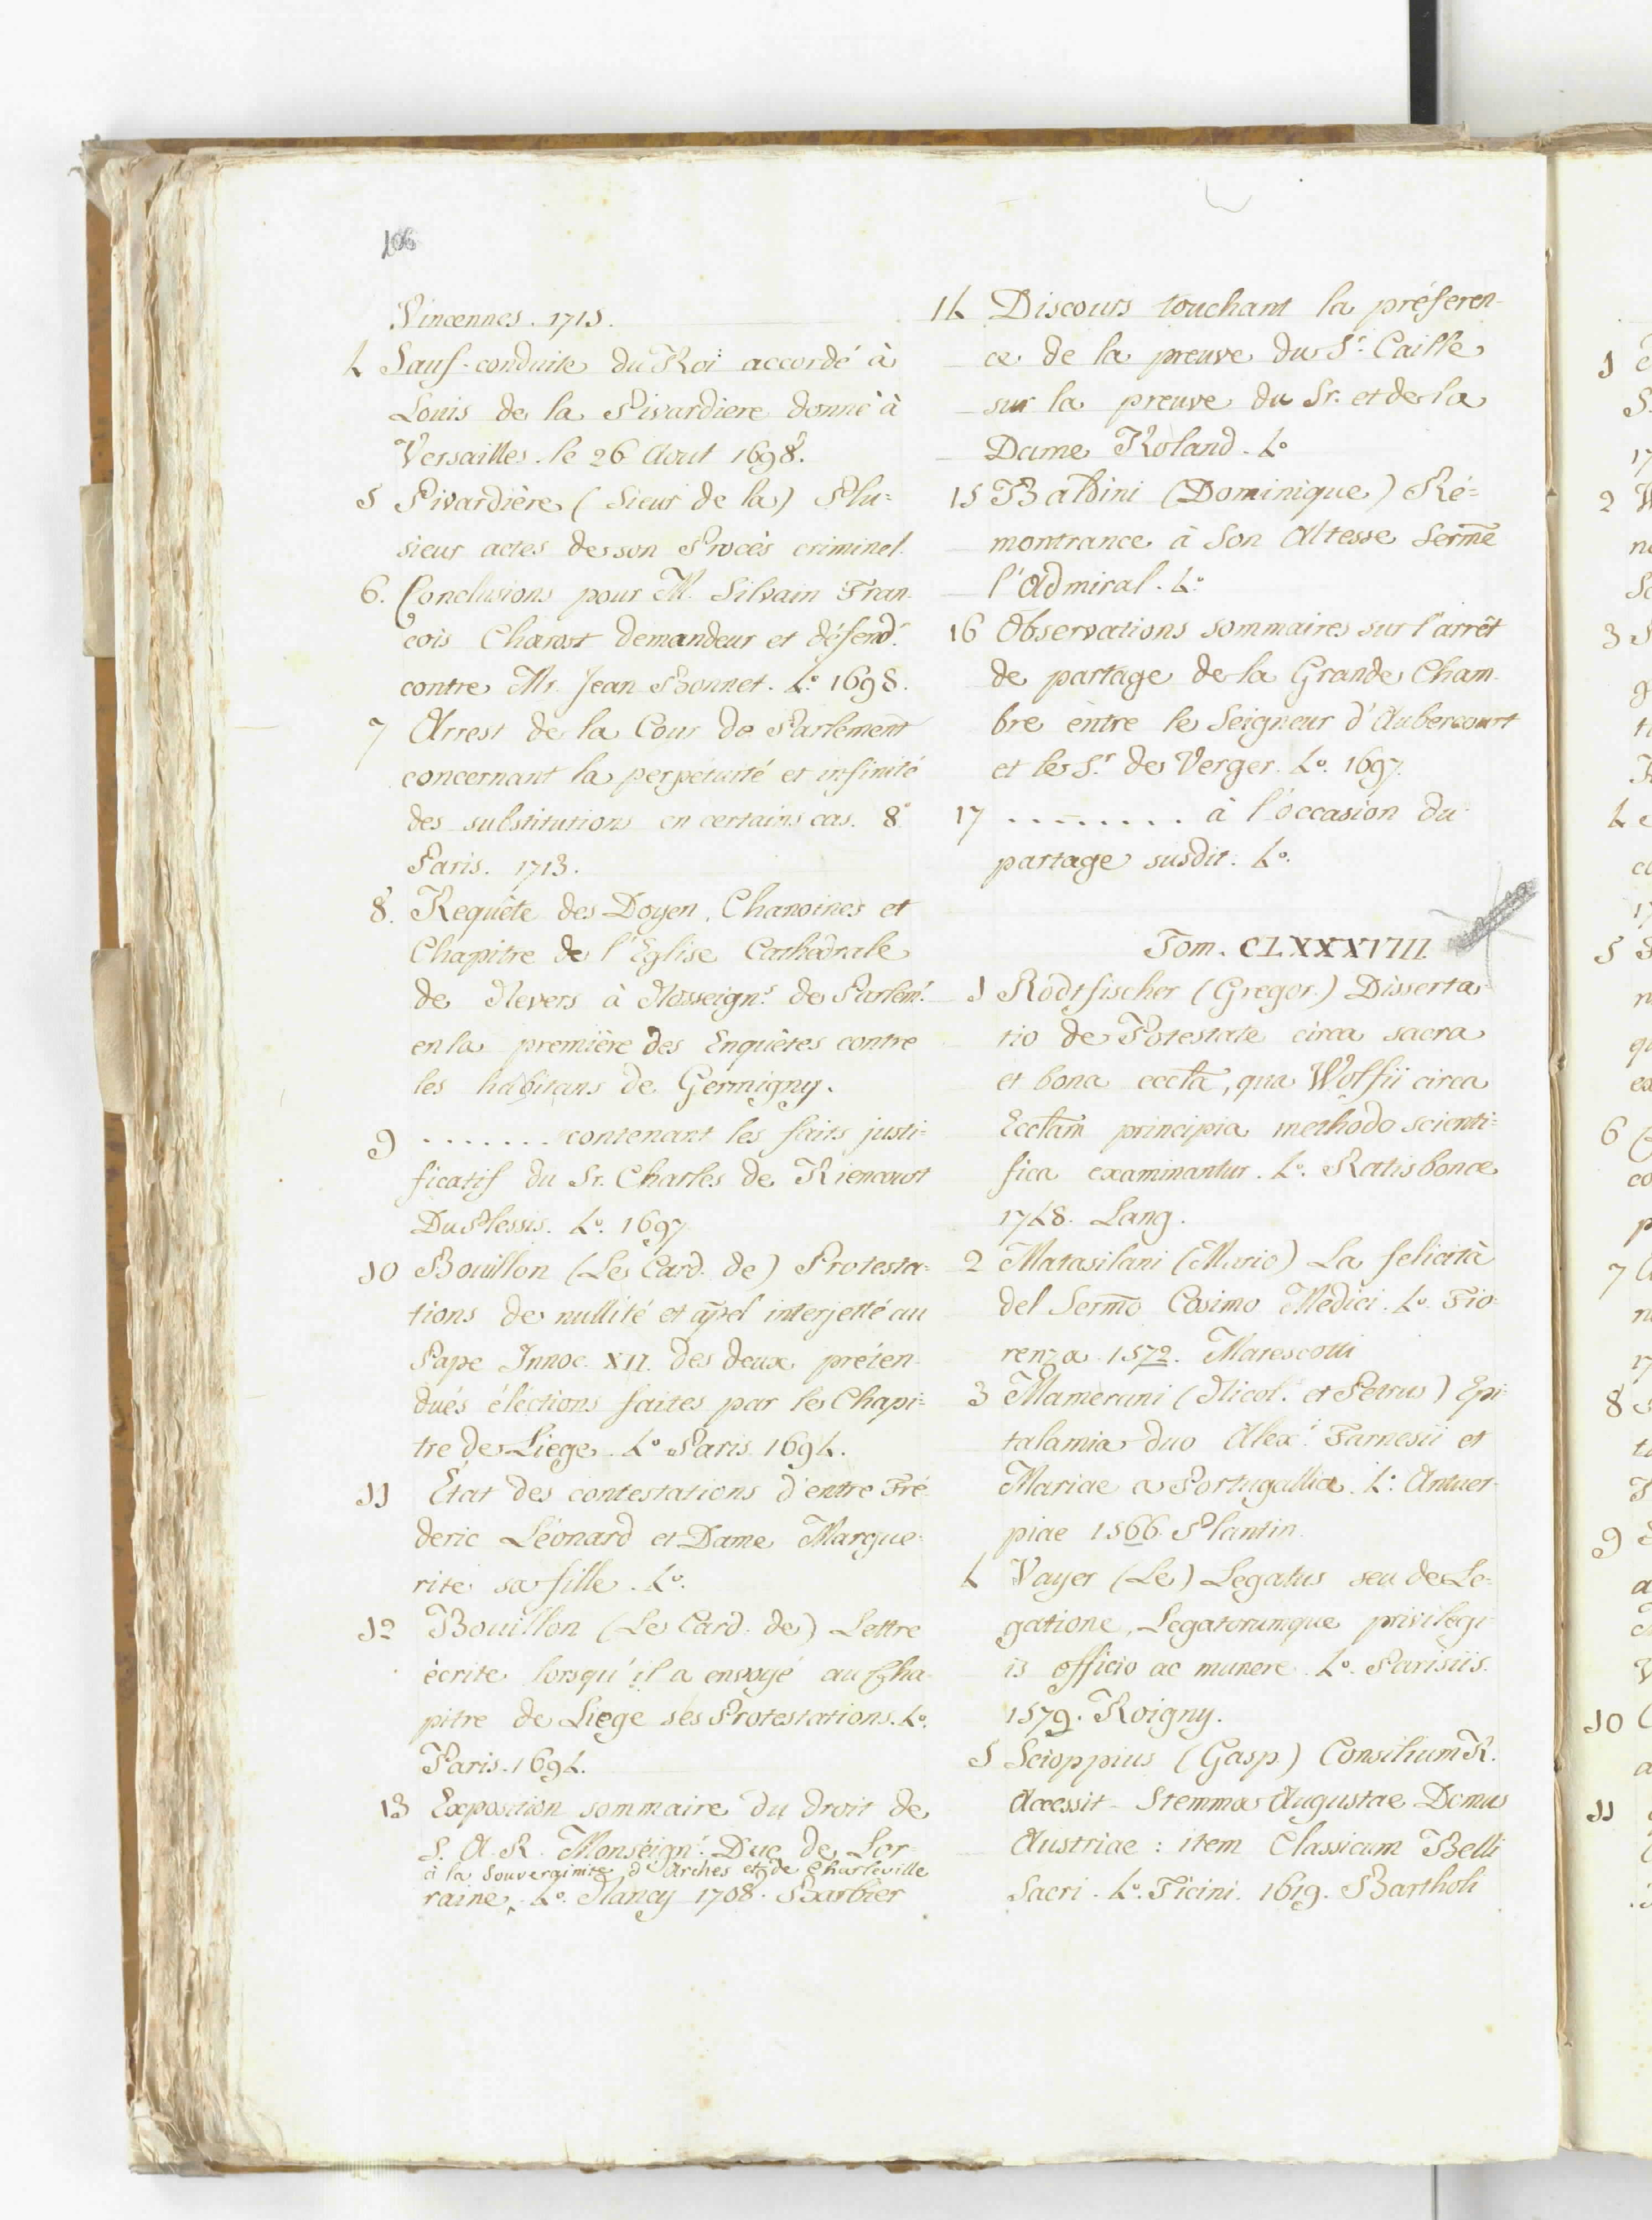 106
Vincennes. 1715.
4 Sauf-conduite du Roi accordé à
Louis de la Pivardiere donné à
Versailles. le 26 Aout 1698.
5 Pivardière (Sieur de la) Plu=
sieur actes de son Procès criminel.
6. Conclusions pour M. Silvain Fran-
cois Charost demandeur et défend.r
contre Mr. Jean Bonnet. 4.o 1698.
7 Arrest de la Cour de Parlement
concernant la perpetuité et infinité
des substitutions en certains cas. 8.o
Paris. 1713.
8. Requête des Doyen, Chanoines et
Chapitre de l'Eglise Cathédrale
de Nevers à Nosseign.s de Parlem.t
en la première des Enquêtes contre
les habitans de Germigny.
9 ....... contenant les faits justi=
ficatif du Sr. Charles de Riencourt
Du Plessis. 4.o 1697
10 Bouillon (Le Card. de) Protesta=
tions de nullité et apel interjetté au
Pape Innoc. XII. des deux préten-
dués éléctions faites par le Chapi=
tre de Liege. 4.o Paris 1694.
11 Etat des contestations d'entre Fré-
deric Léonard et Dame Margue-
rite sa fille. 4.o
12 Bouillon (Le Card. de) Lettre
écrite lorsqu'il a envoyé au Cha-
pitre de Liege ses Protestations. 4.o
Paris. 1694.
13 Exposition sommaire du droit de
S. A. R. Monseign.r Duc de Lor-
à la Souveraineté d'Arches et de Charleville
raine. 4.o Nancy 1708. Barbier
14 Discours touchant la préferen-
ce de la preuve du S.r Caille
sur la preuve du Sr. et de la
Dame Roland. 4.o
15 Baldini (Dominique) Ré=
montrance à Son Altesse Serm̄e
l'Admiral. 4.o
16 Observations sommaires sur l'arrêt
de partage de la Grande Cham-
bre entre le Seigneur d'Aubercourt
et le S.r de Verger. 4.o 1697.
17 ........ à l'occasion du
partage susdit. 4.o
Tom. CLXXXVIII.
1 Rodtfischer (Gregor.) Disserta-
tio de Potestate circa sacra
et bona eccl̄a, qua Wolfii circa
Eccl̄am principia methodo scienti=
fica examinantur. 4.o Ratisbonae
1748. Lang.
2 Matasilani (Mario) La felicità
del Serm̄o Cosimo Medici. 4.o Fio-
renza 1572. Marescotti
3 Mamerani (Nicol. et Petrus) Epi-
talamia duo Alex.i Farnesii et
Mariae a Portugallia. 4.o Antuer-
piae 1566. Plantin.
4 Vayer (Le) Legatus seu de Le-
gatione, Legatorumque privilegi-
is officio ac munere. 4.o Parisiis.
1579. Roigny.
5 Scioppius (Gasp.) Consilium R.
Accessit Stemma Augustae Domus
Austriae : item Classicum Belli
Sacri. 4.o Ticini. 1619. Bartholi